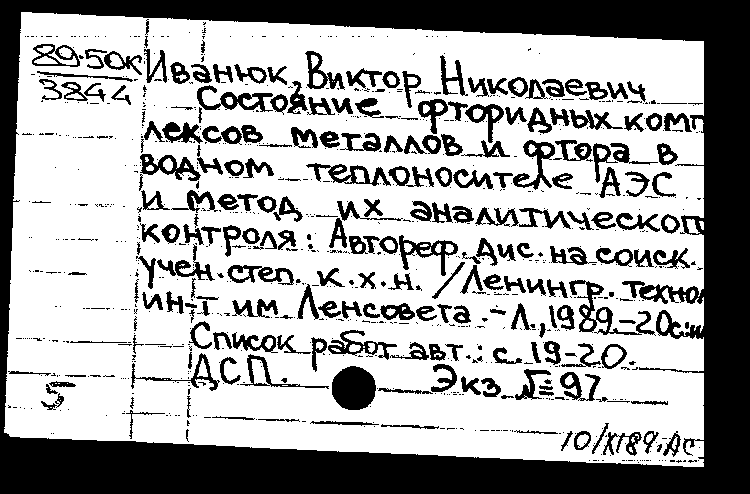 89-50к
3844
Иванюк, Виктор Николаевич.
Состояние фторидных комп
лексов металлов и фтора в
водном теплоносителе АЭС
и метод их аналитического
контроля: Автореф. дис. на соиск.
учен. степ. к.х.н. /Ленингр. технол
ин-т им Ленсовета. - Л., 1989 - 20с.:
Список работ авт.: с. 19-20.
ДСП. Экз. №97.
5
10/XI89. АС